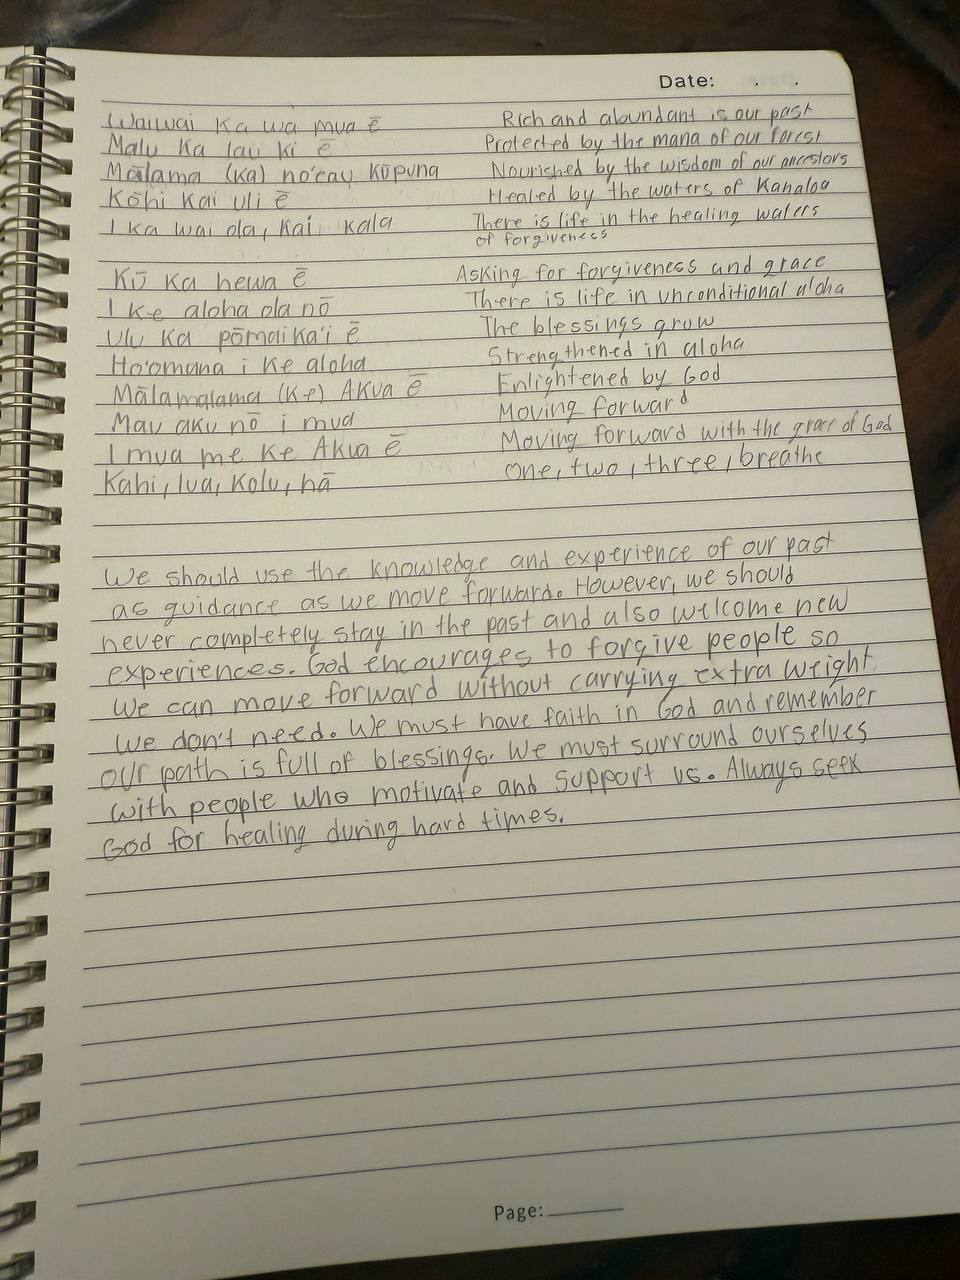 Date: . .
Waiwai Ka wa mua ē Rich and abundant is our past
Malu Ka lau Ki ē Protected by the mana of our forest
Mālama (Ka) no'eau Kūpuna Nourished by the wisdom of our ancestors
Kōhi Kai uli ē Healed by the waters of Kanaloa
I Ka wai ola, Kai Kala There is life in the healing waters
of forgiveness
Kū Ka hewa ē Asking for forgiveness and grace
I Ke aloha ola nō There is life in unconditional aloha
Ulu Ka pōmaika'i ē The blessings grow
Ho'omana i Ke aloha Strengthened in aloha
Mālamalama (Ke) Akua ē Enlightened by God
Mau aku nō i mua Moving forward
I mua me Ke Akua ē Moving forward with the grace of God
Kahi, lua, Kolu, hā One, two, three, breathe
We should use the knowledge and experience of our past
as guidance as we move forward. However, we should
never completely stay in the past and also welcome new
experiences. God encourages to forgive people so
we can move forward without carrying extra weight
we don't need. We must have faith in God and remember
our path is full of blessings. We must surround ourselves
with people who motivate and support us. Always seek
God for healing during hard times.
Page: